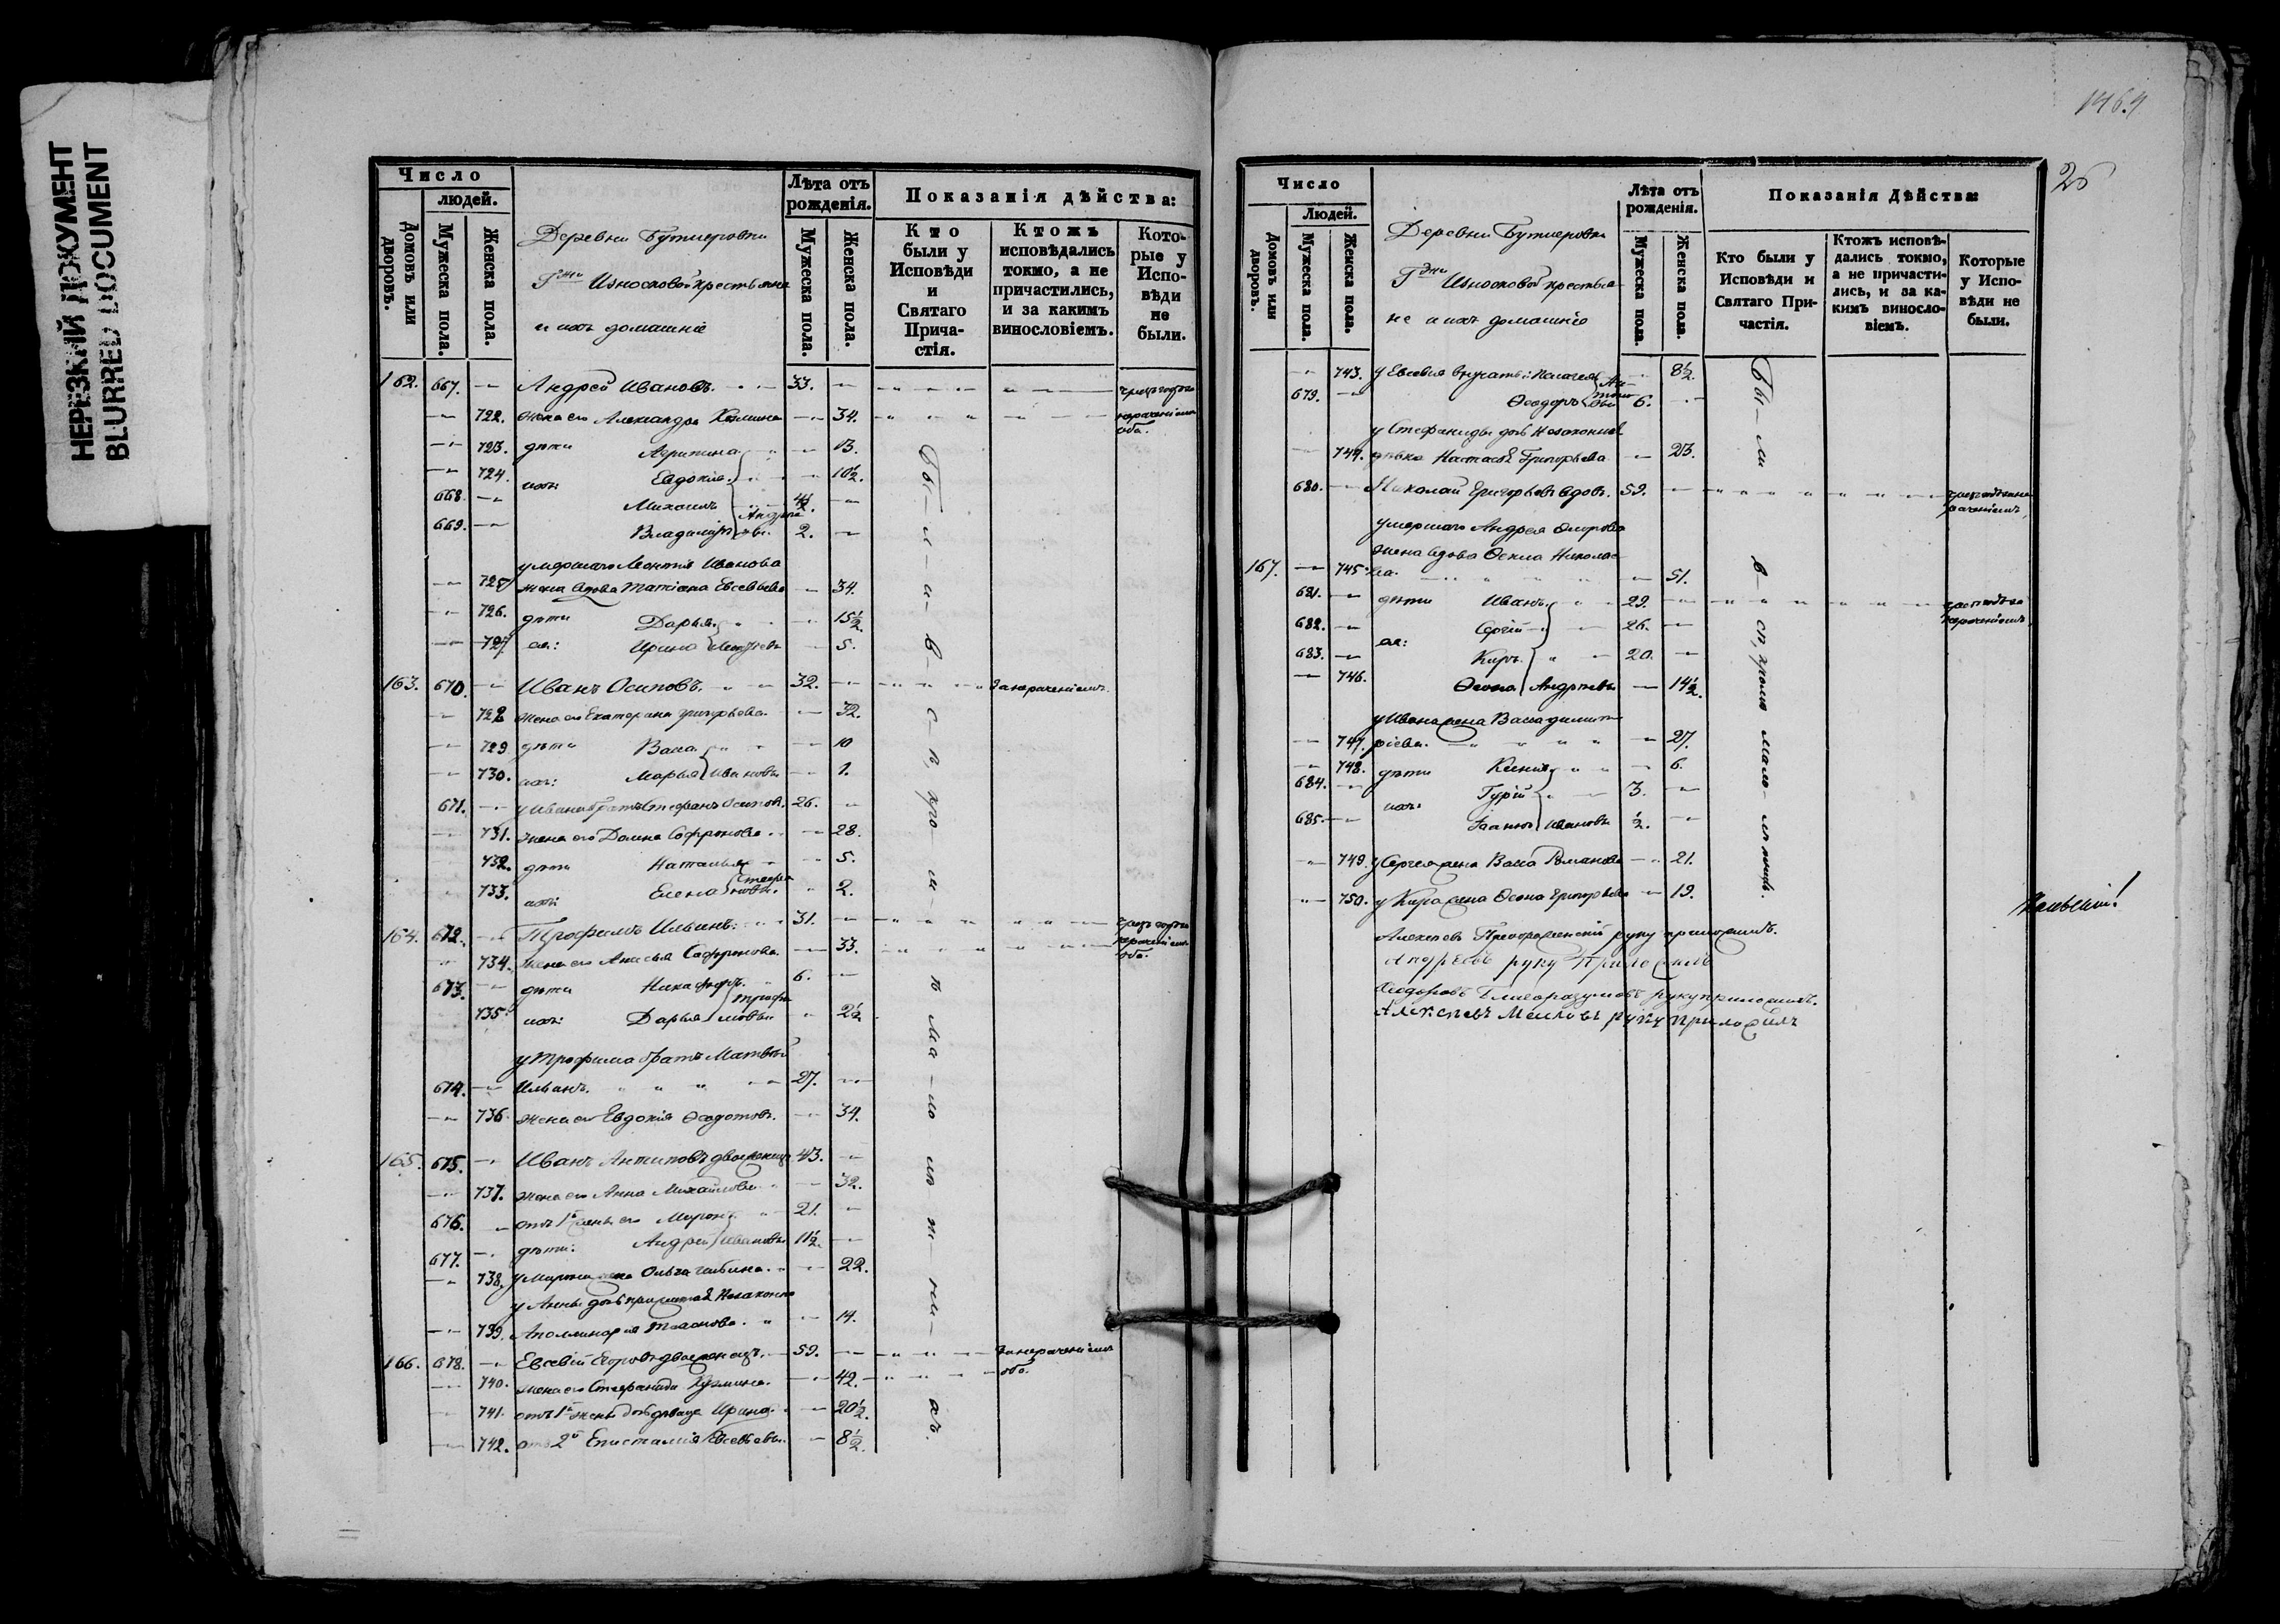 НЕРЕЗКИЙ ДОКУМЕНТ
BLURRED DOCUMENT
Число
людей.
Домовъ или дворовъ.
Мужеска пола.
Женска пола.
Деревни Бутлеровки
Г-жи Износковой крестьяне
и ихъ домашніе
Лѣта отъ рожденія.
Мужеска пола.
Женска пола.
Показанія дѣйства:
Кто были у Исповѣди и Святаго Прича-стія.
Ктожъ исповѣдались токмо, а не причастились, и за какимъ винословіемъ.
Кото-рые у Испо-вѣди не были.
162. 667. Андрей Ивановъ. 33.
722. жена его Александра Козмина 34.
723. дѣти Агрипина 13.
724. ихъ: Евдокія 10½.
668. Михаилъ 4½.
669. Владимиръ Андреевы 2.
умершаго Леонтія Иванова
725 жена вдова Татіана Евсевьева 34.
726. дѣти Дарья 15½.
727. ея: Ирина Леонтьевы 5.
163. 670. Иванъ Осиповъ. 32. За нераченіемъ.
728 жена его Екатерина Григорьева. 32.
729 дѣти Васса 10
730. ихъ: Марья Ивановы 1.
671. у Ивана братъ Стефанъ Осиповъ. 26.
731. жена его Домна Софронова. 28.
732. дѣти Наталья 5.
733. ихъ: Елена Стефановы. 2.
164. 672. Трофимъ Ильинъ. 31.
734. жена его Анисья Софронова. 33.
673. дѣти Никифоръ. 6.
735. ихъ: Дарья Трофимовы 2½
у Трофима братъ Матвей
674. Ильинъ. 27.
736. жена его Евдокія Ѳедотова. 34.
165. 675. Иванъ Антиповъ двоеженецъ 43.
737. жена его Анна Михайлова 32.
676. отъ 1й жены его Миронъ 21.
677. дѣти: Андрей Ивановы 11½.
738. у Мирона жена Ольга 22.
у Анны дочь прижитая незаконно
739. Аполлинарія 14.
166. 678. Евсевій Егоровъ двоеженецъ. 59. За нераченіемъ
740. жена его Стефанида Кузмина. 42. оба.
741. отъ 1й жены дочь дѣвица Ирина 20½.
742. отъ 2й Епистимія Евсевьевы. 8½.
Бы-ли-и-в-с-п,
1464
26
Число
Людей.
Домовъ или дворовъ.
Мужеска пола.
Женска пола.
Деревни Бутлеровки
Г-жи Износковой крестья-
не и ихъ домашніе
Лѣта отъ рожденія.
Мужеска пола.
Женска пола.
Показанія Дѣйства:
Кто были у Исповѣди и Святаго При-частія.
Ктожъ исповѣ-дались токмо, а не причасти-лись, и за ка-кимъ виносло-віемъ.
Которые у Испо-вѣди не были.
743. у Евсевія внучаты: Пелагея 8½.
679. Ѳеодоръ 6.
у Стефаниды дочь незаконная
744. дѣвка Настасья Григорьева 23.
680. Николай Григорьевъ вдовъ. 59.
умершаго Андрея Егорова
жена вдова Ѳекла Николае-
167. 745. ва. 51.
681. дѣти Иванъ 29.
682. Сергій 26.
683. ея: Киръ 20.
746. Ѳеона Андреевы 14½.
у Ивана жена Васса Димит-
747. ріева. 27.
748. дѣти Ксенія 6.
684. ихъ: Гурій 3.
685. Іоаннъ Ивановы ½.
749. у Сергея жена Васса Романова 21.
750. у Кира жена Ѳеона Григорьева 19.
Алексѣевъ Преображенскій руку приложилъ.
Андреевъ руку приложилъ
Ѳеодоровъ Благоразумовъ руку приложилъ.
Алексѣевъ руку приложилъ